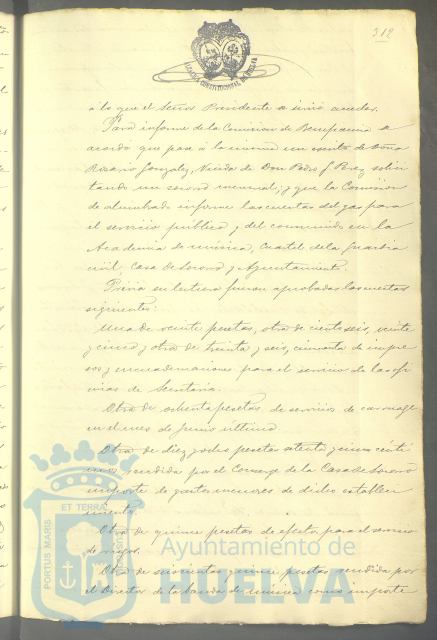 312
ALCALDIA CONSTITUCIONAL DE HUELVA
á lo que el Señor Presidente se sirvió acceder.
Para informe de la Comision de Beneficencia se
acordó que pase á la misma un escrito de Doña
Rosario Gonzalez, Viuda de Don Pedro J. Perez solici
tando un socorro mensual; y que la Comision
de alumbrado informe las cuentas del gas para
el servicio publico y del consumido en la
Academia de musica, Cuartel de la Guardia
civil, Casa de Socorro y Ayuntamiento.
Prévia su lectura fueron aprobadas las cuentas
siguientes:
Una de veinte pesetas, otra de ciento seis, veinte
y cinco y otra de treinta y seis, cincuenta de impre
sos y encuadernaciones para el servicio de las ofi
cinas de Secretaria.
Otra de ochenta pesetas de servicio de carruage
en el mes de Junio último.
Otra de diez y ocho pesetas setenta y cinco cénti
mos rendida por el Conserge de la Casa de Socorro
importe de gastos menores de dicho estableci
miento.
Otra de quince pesetas de efectos para el servicio
de riegos.
Otra de cincuenta y cinco pesetas rendida por
el Director de la banda de música como importe
PORTUS MARIS ET TERRAE
Ayuntamiento de
HUELVA